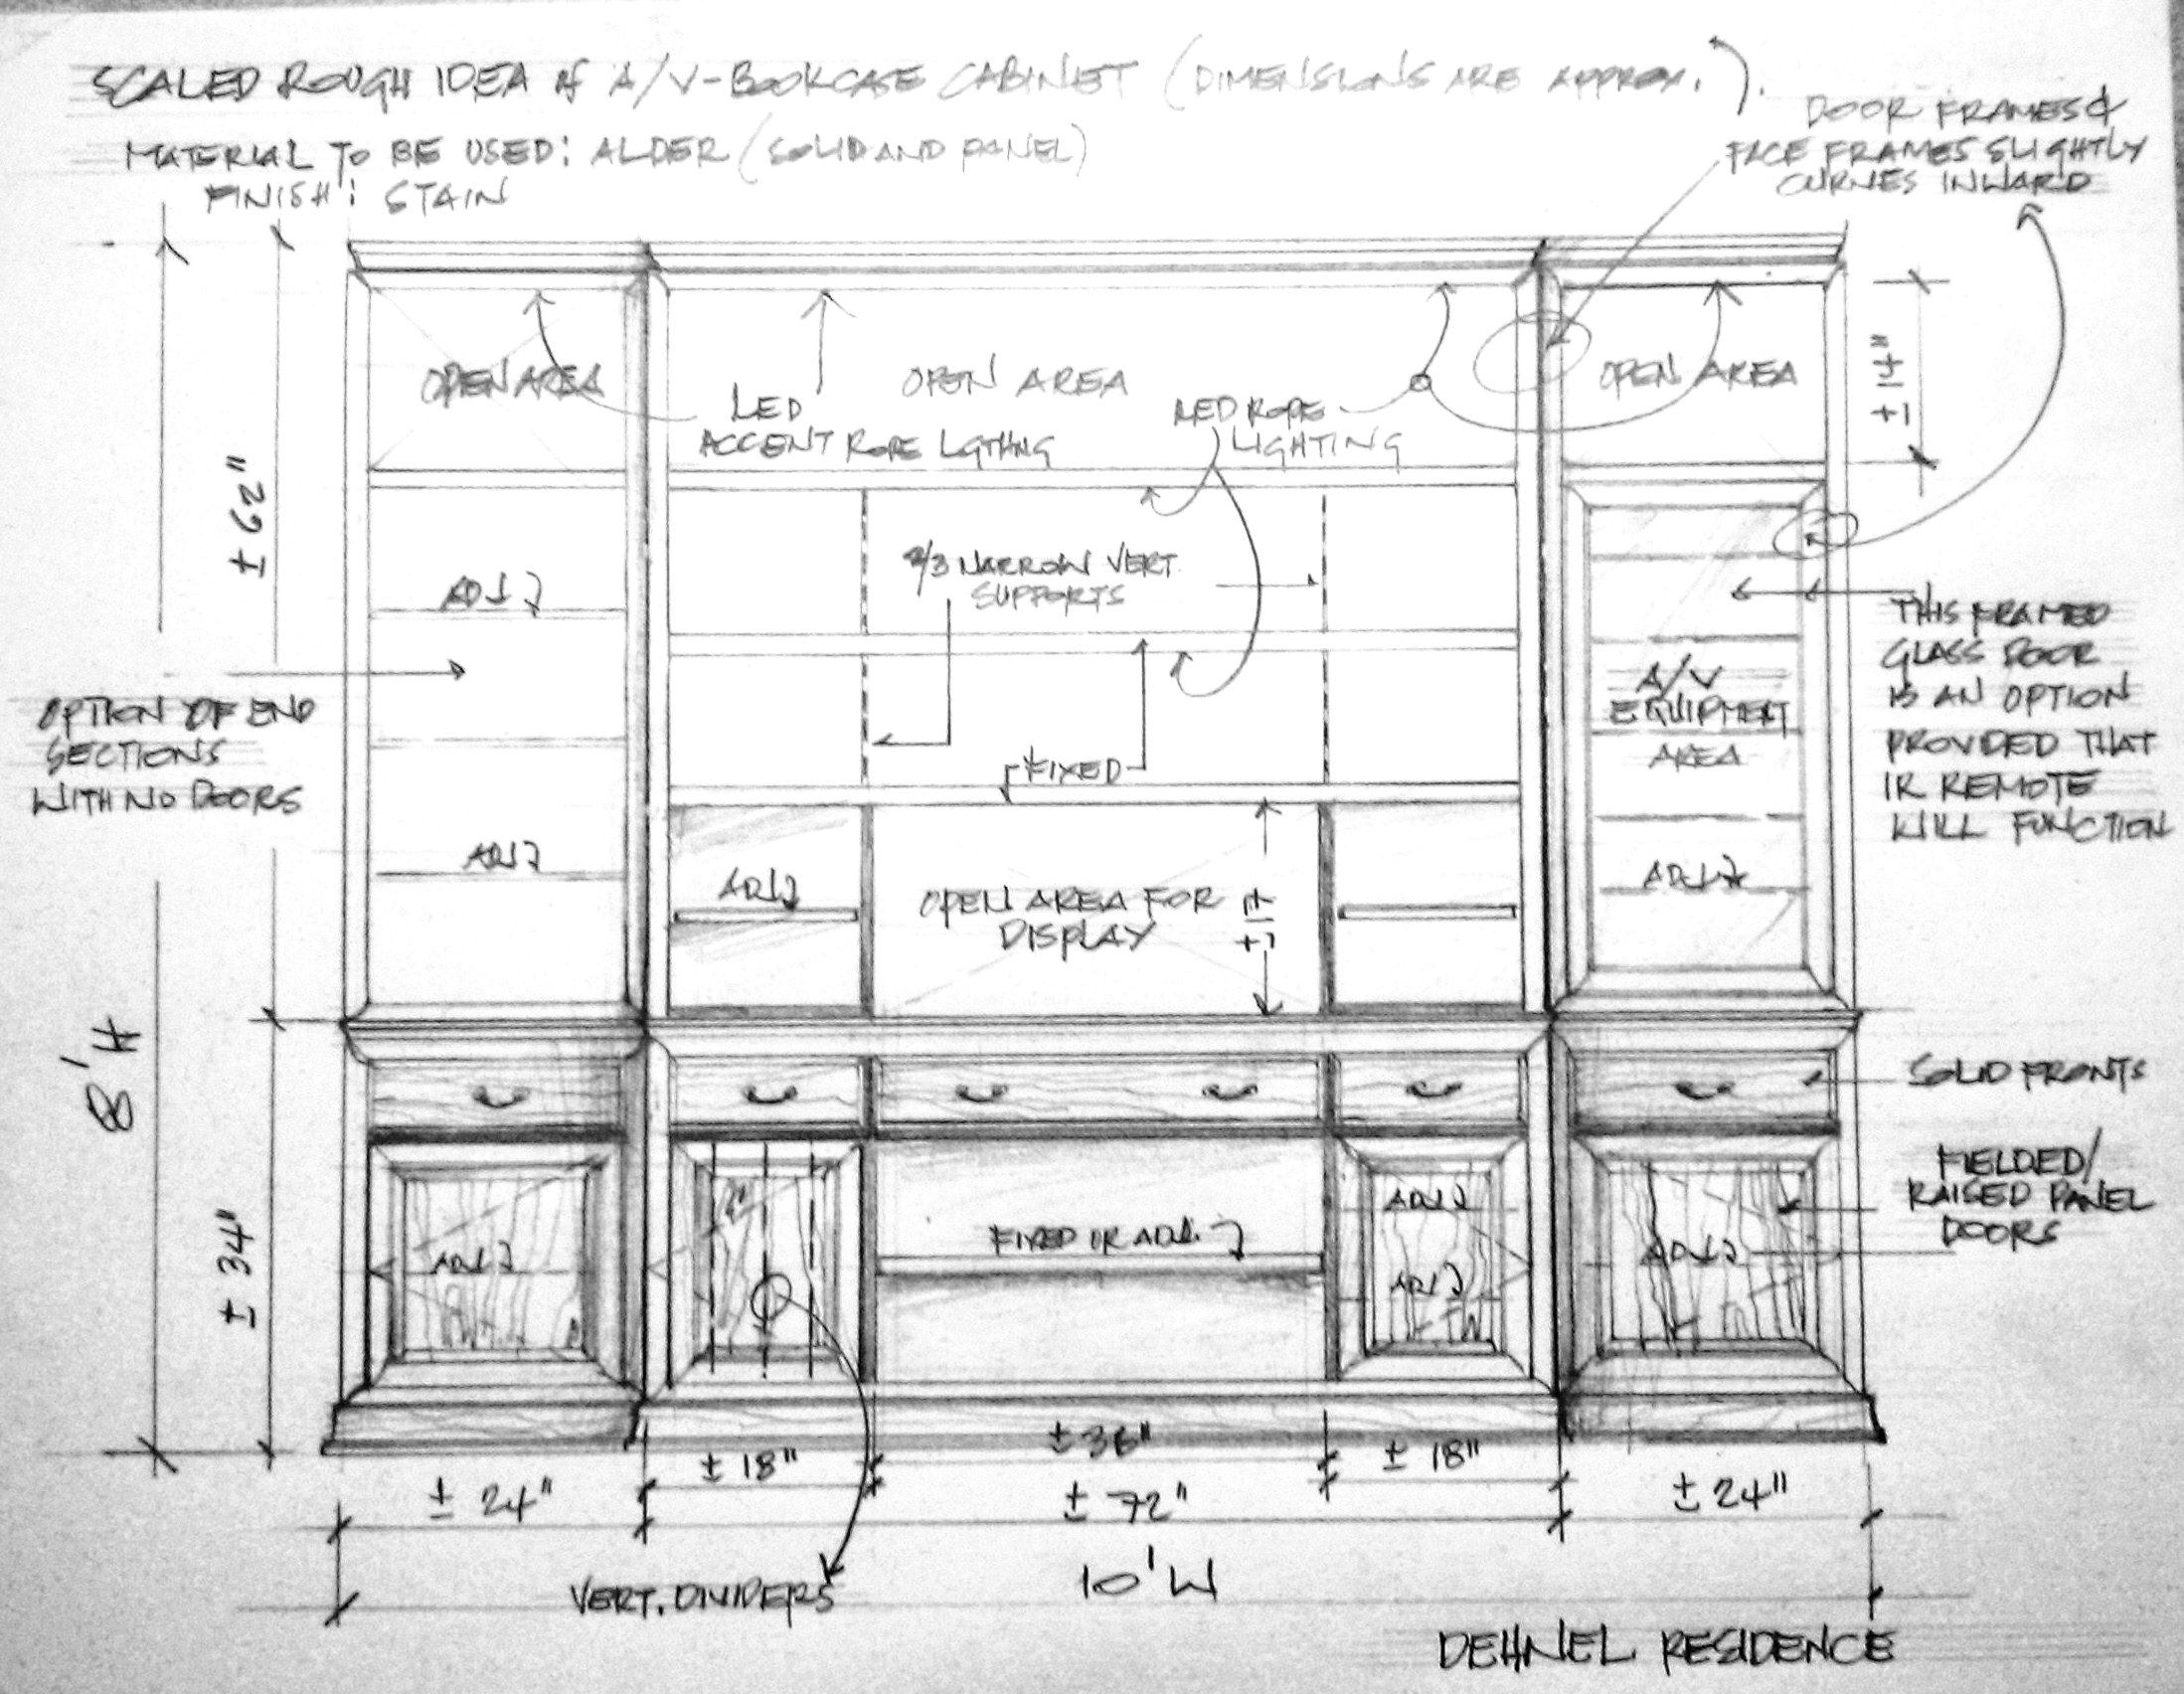 SCALED ROUGH IDEA of A/V-BOOKCASE CABINET (DIMENSIONS ARE APPROX.).
MATERIAL TO BE USED: ALDER (SOLID AND PANEL)
FINISH: STAIN
DOOR FRAMES &
FACE FRAMES SLIGHTLY
CURVES INWARD
OPEN AREA
OPEN AREA
OPEN AREA
± 14"
LED
ACCENT ROPE LGTHNG
LED ROPE
LIGHTING
± 62"
2/3 NARROW VERT.
SUPPORTS
ADJ
THIS FRAMED
GLASS DOOR
IS AN OPTION
PROVIDED THAT
IR REMOTE
WILL FUNCTION
A/V
EQUIPMENT
AREA
OPTION OF END
SECTIONS
WITH NO DOORS
FIXED
ADJ
ADJ
OPEN AREA FOR
DISPLAY
± 17"
ADJ
8' H
SOLID FRONTS
FIELDED/
RAISED PANEL
DOORS
± 34"
ADJ
FIXED OR ADJ.
ADJ
ADJ
ADJ
± 24"
± 18"
± 36"
± 18"
± 24"
± 72"
VERT. DIVIDERS
10' W
DEHNEL RESIDENCE